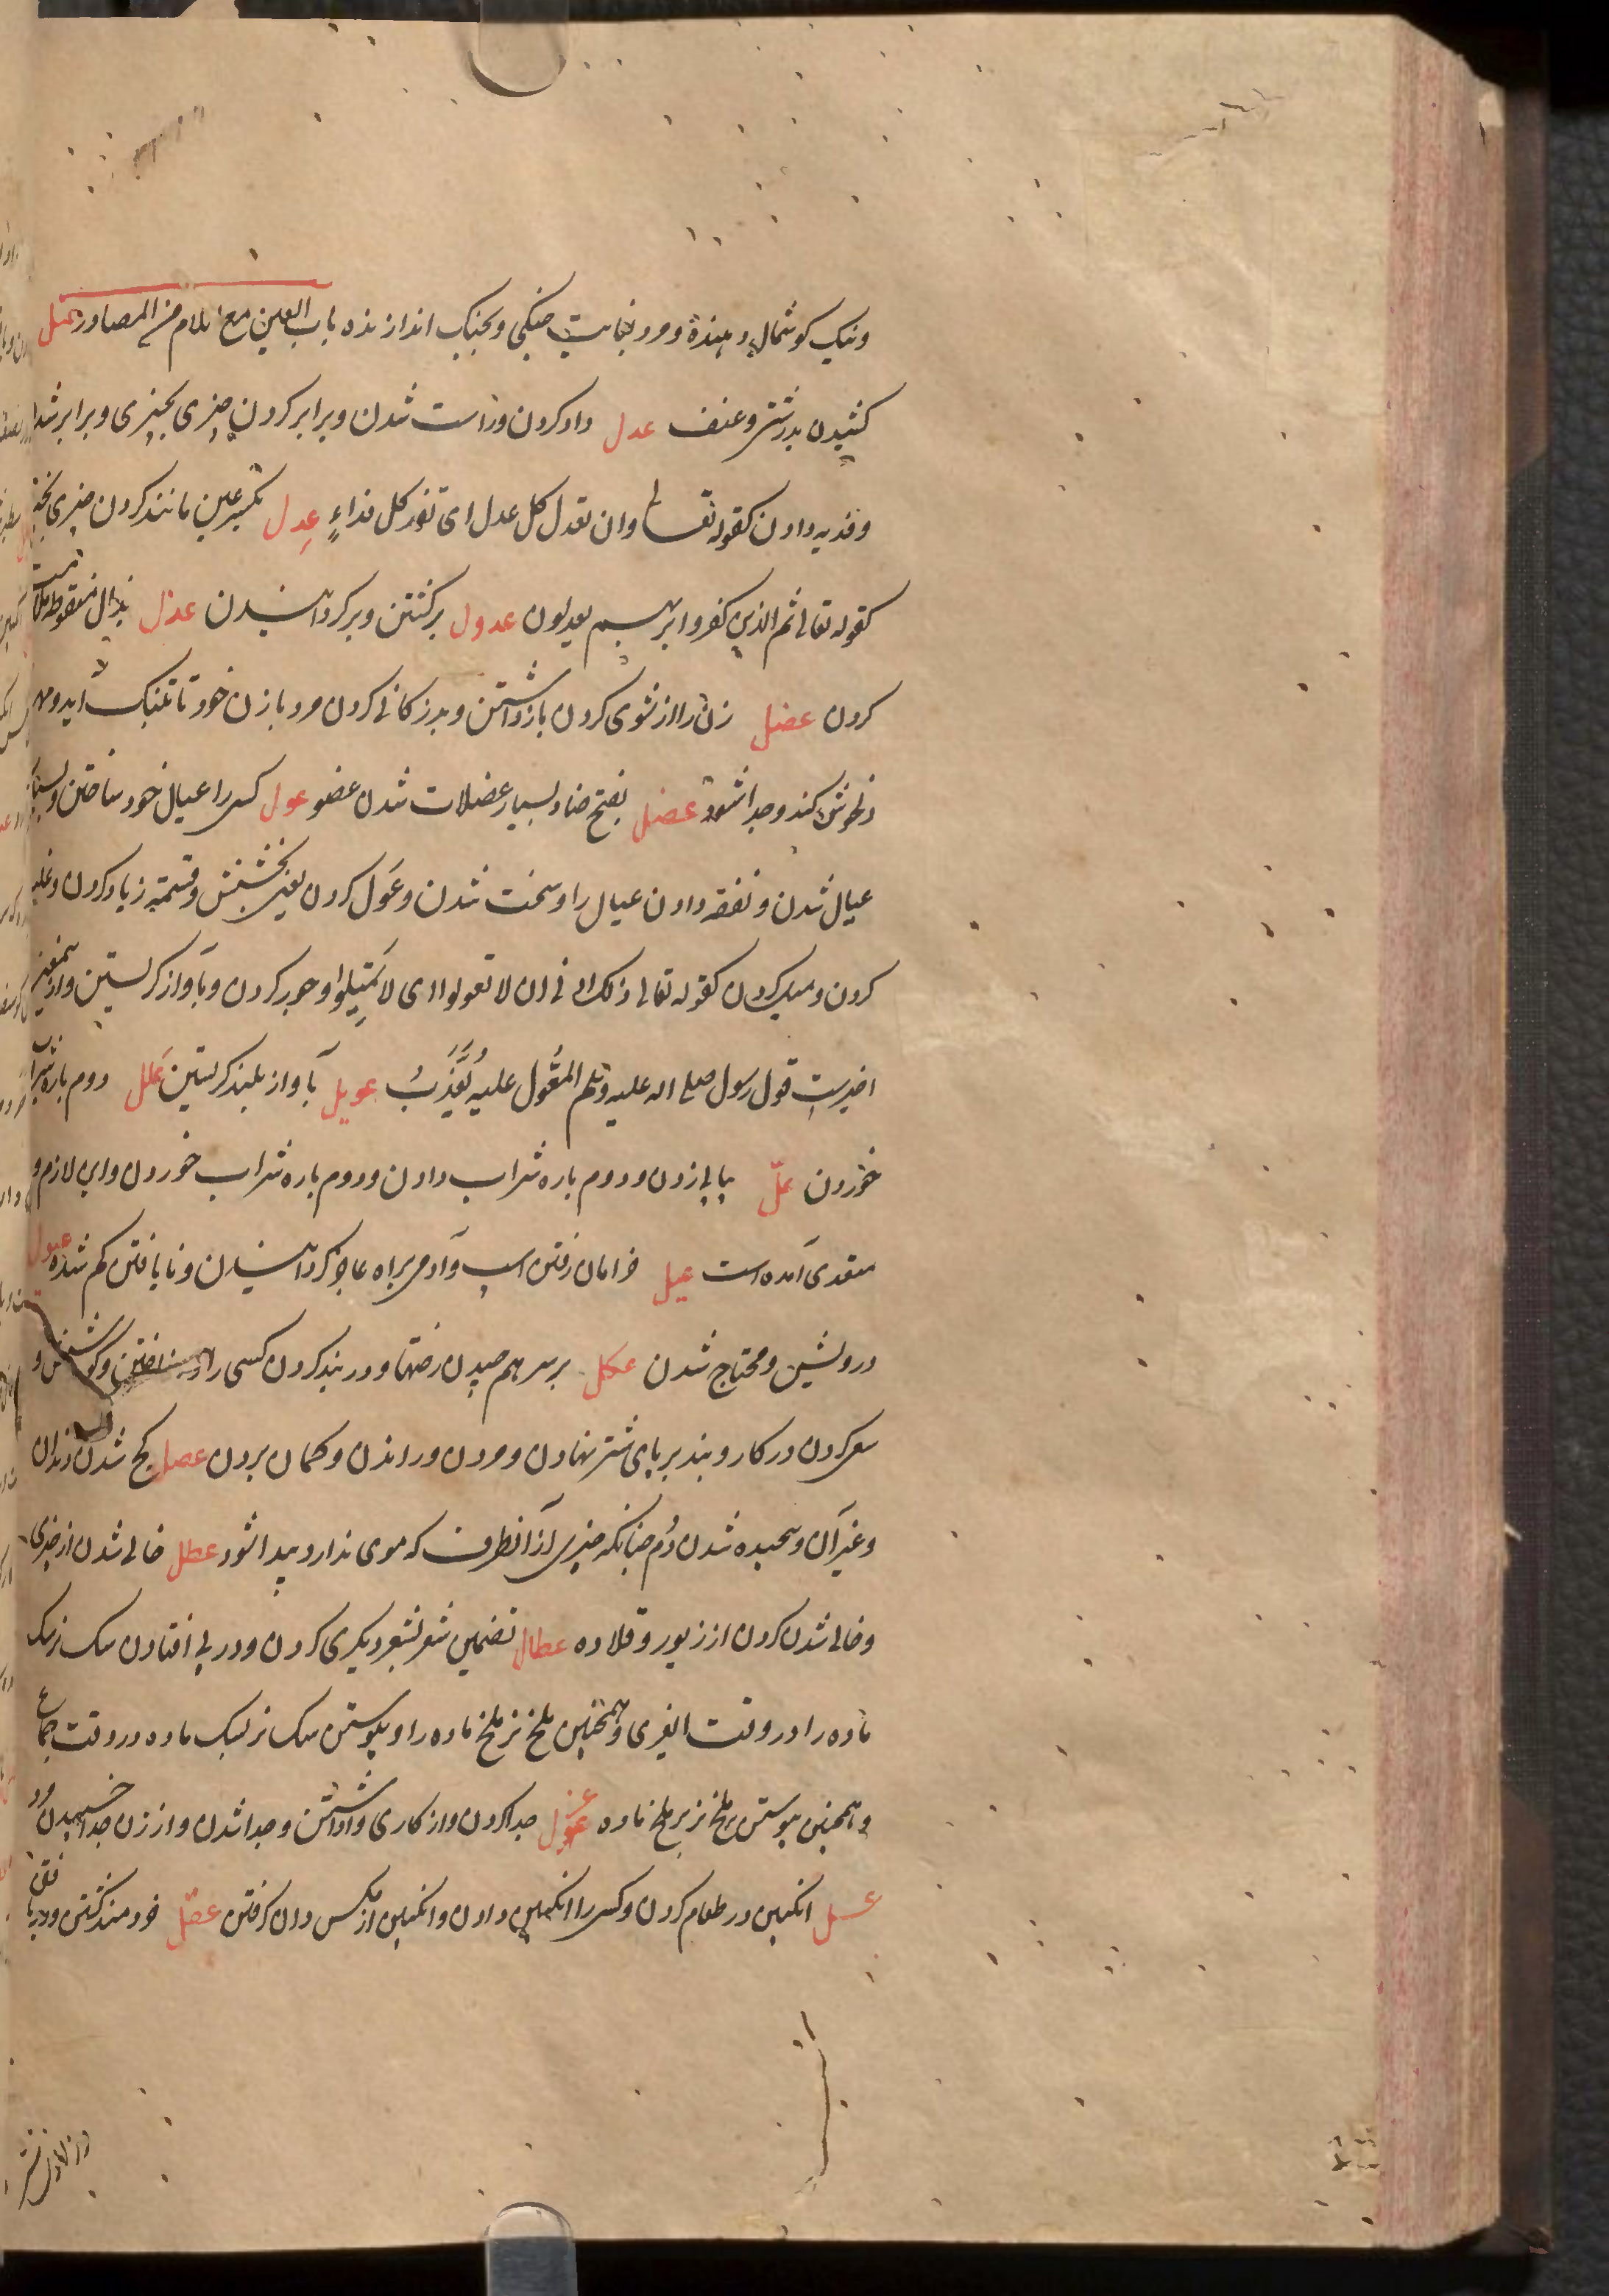 ونیک کوشمال دهنده ومرد بغایت جنگی وبجنگ اندازنده باب العین مع اللام من المصادر عتل
کشیدن بدرشتی وعنف عدل داد کردن وراست شدن وبرابر کردن چیزی بچیزی وبرابر شدن
وفدیه دادن کقوله تعالی وان تعدل کل عدل ای تفد کل فداءٍ عِدل بکسر عین مانند کردن چیزی بچیزی
کقوله تعالی ثم الذین کفروا بربهم یعدلون عدول برگشتن وبرگردانیدن عذل بذال منقوطه ملامت
کردن عضل زن را از شوی کردن بازداشتن وبد زندکانی کردن مرد با زن خود تا بتنک آید ومهر
بفتح ضاد بسیار عضلات شدن عضو عول کسی را عیال خود ساختن وبسیار
عیال شدن ونفقه دادن عیال را وسخت شدن وعَول کردن یعنی بخشش وقسمة زیاد کردن وغلبه
کردن ومیل کردن کقوله تعالی ذلک ادنی ان لا تعولوا ای لا تمیلوا وجور کردن وبآواز کریستن وازینمعنی
اخیرست قول رسول صلی الله علیه وسلم المُعْوَل علیه یُعَذَّبُ عویل بآواز بلند کریستن عَلَل دوم باره شراب
خوردن علّ پیاپی زدن ودوم باره شراب دادن ودوم باره شراب خوردن واین لازم و
متعدی آمده است عیل خرامان رفتن اسپ وآدمی براه عاجز گردانیدن ونایافتن کم شده عیول
درویش ومحتاج شدن عکل برسر هم چیدن رختها ودر بند کردن کسی را وکوشش و
سعی کردن در کار وبند بر پای شتر نهادن ومردن وراندن وکمان بردن عصل کج شدن دندان
وغیر آن وپیچیده شدن دُم چنانکه چیزی از آنطرف که موی ندارد پیدا شود عطل خالی شدن از چیزی
وخالی شدن کردن از زیور وقلاده عطال تضمین شعر بشعر دیگری کردن ودر پی افتادن سک نر سک
ماده را در وقت وهمچنین ملخ نر ملخ ماده را وپیوستن سک نر بسک ماده در وقت جماع
وهمچنین پیوستن ملخ نر بر ملخ ماده عزل جدا کردن واز کاری واداشتن وجدا شدن واز زن جدا خسپیدن مرد
عسل انکبین در طعام کردن وکسی را انکبین دادن وانکبین از مکس دان کرفتن عقل خردمند کشتن ودریافتن